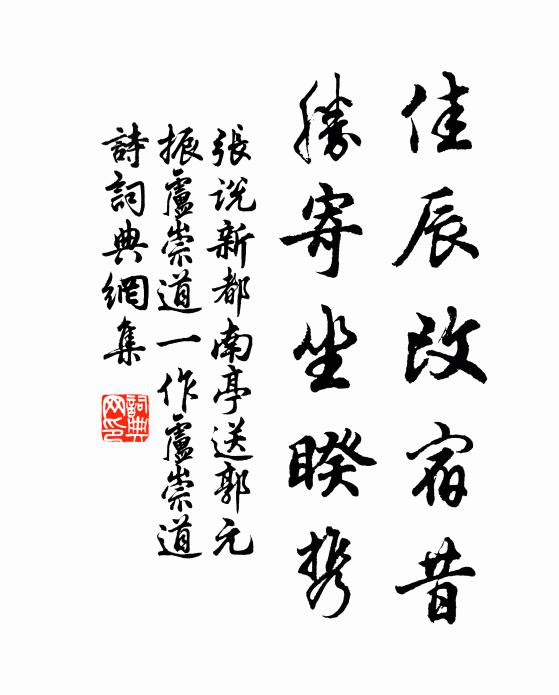 佳辰改宿昔
勝寄坐睽携
張说新都南亭送郭元
振盧崇道一作盧崇道
詩詞典網集
詞典
网印